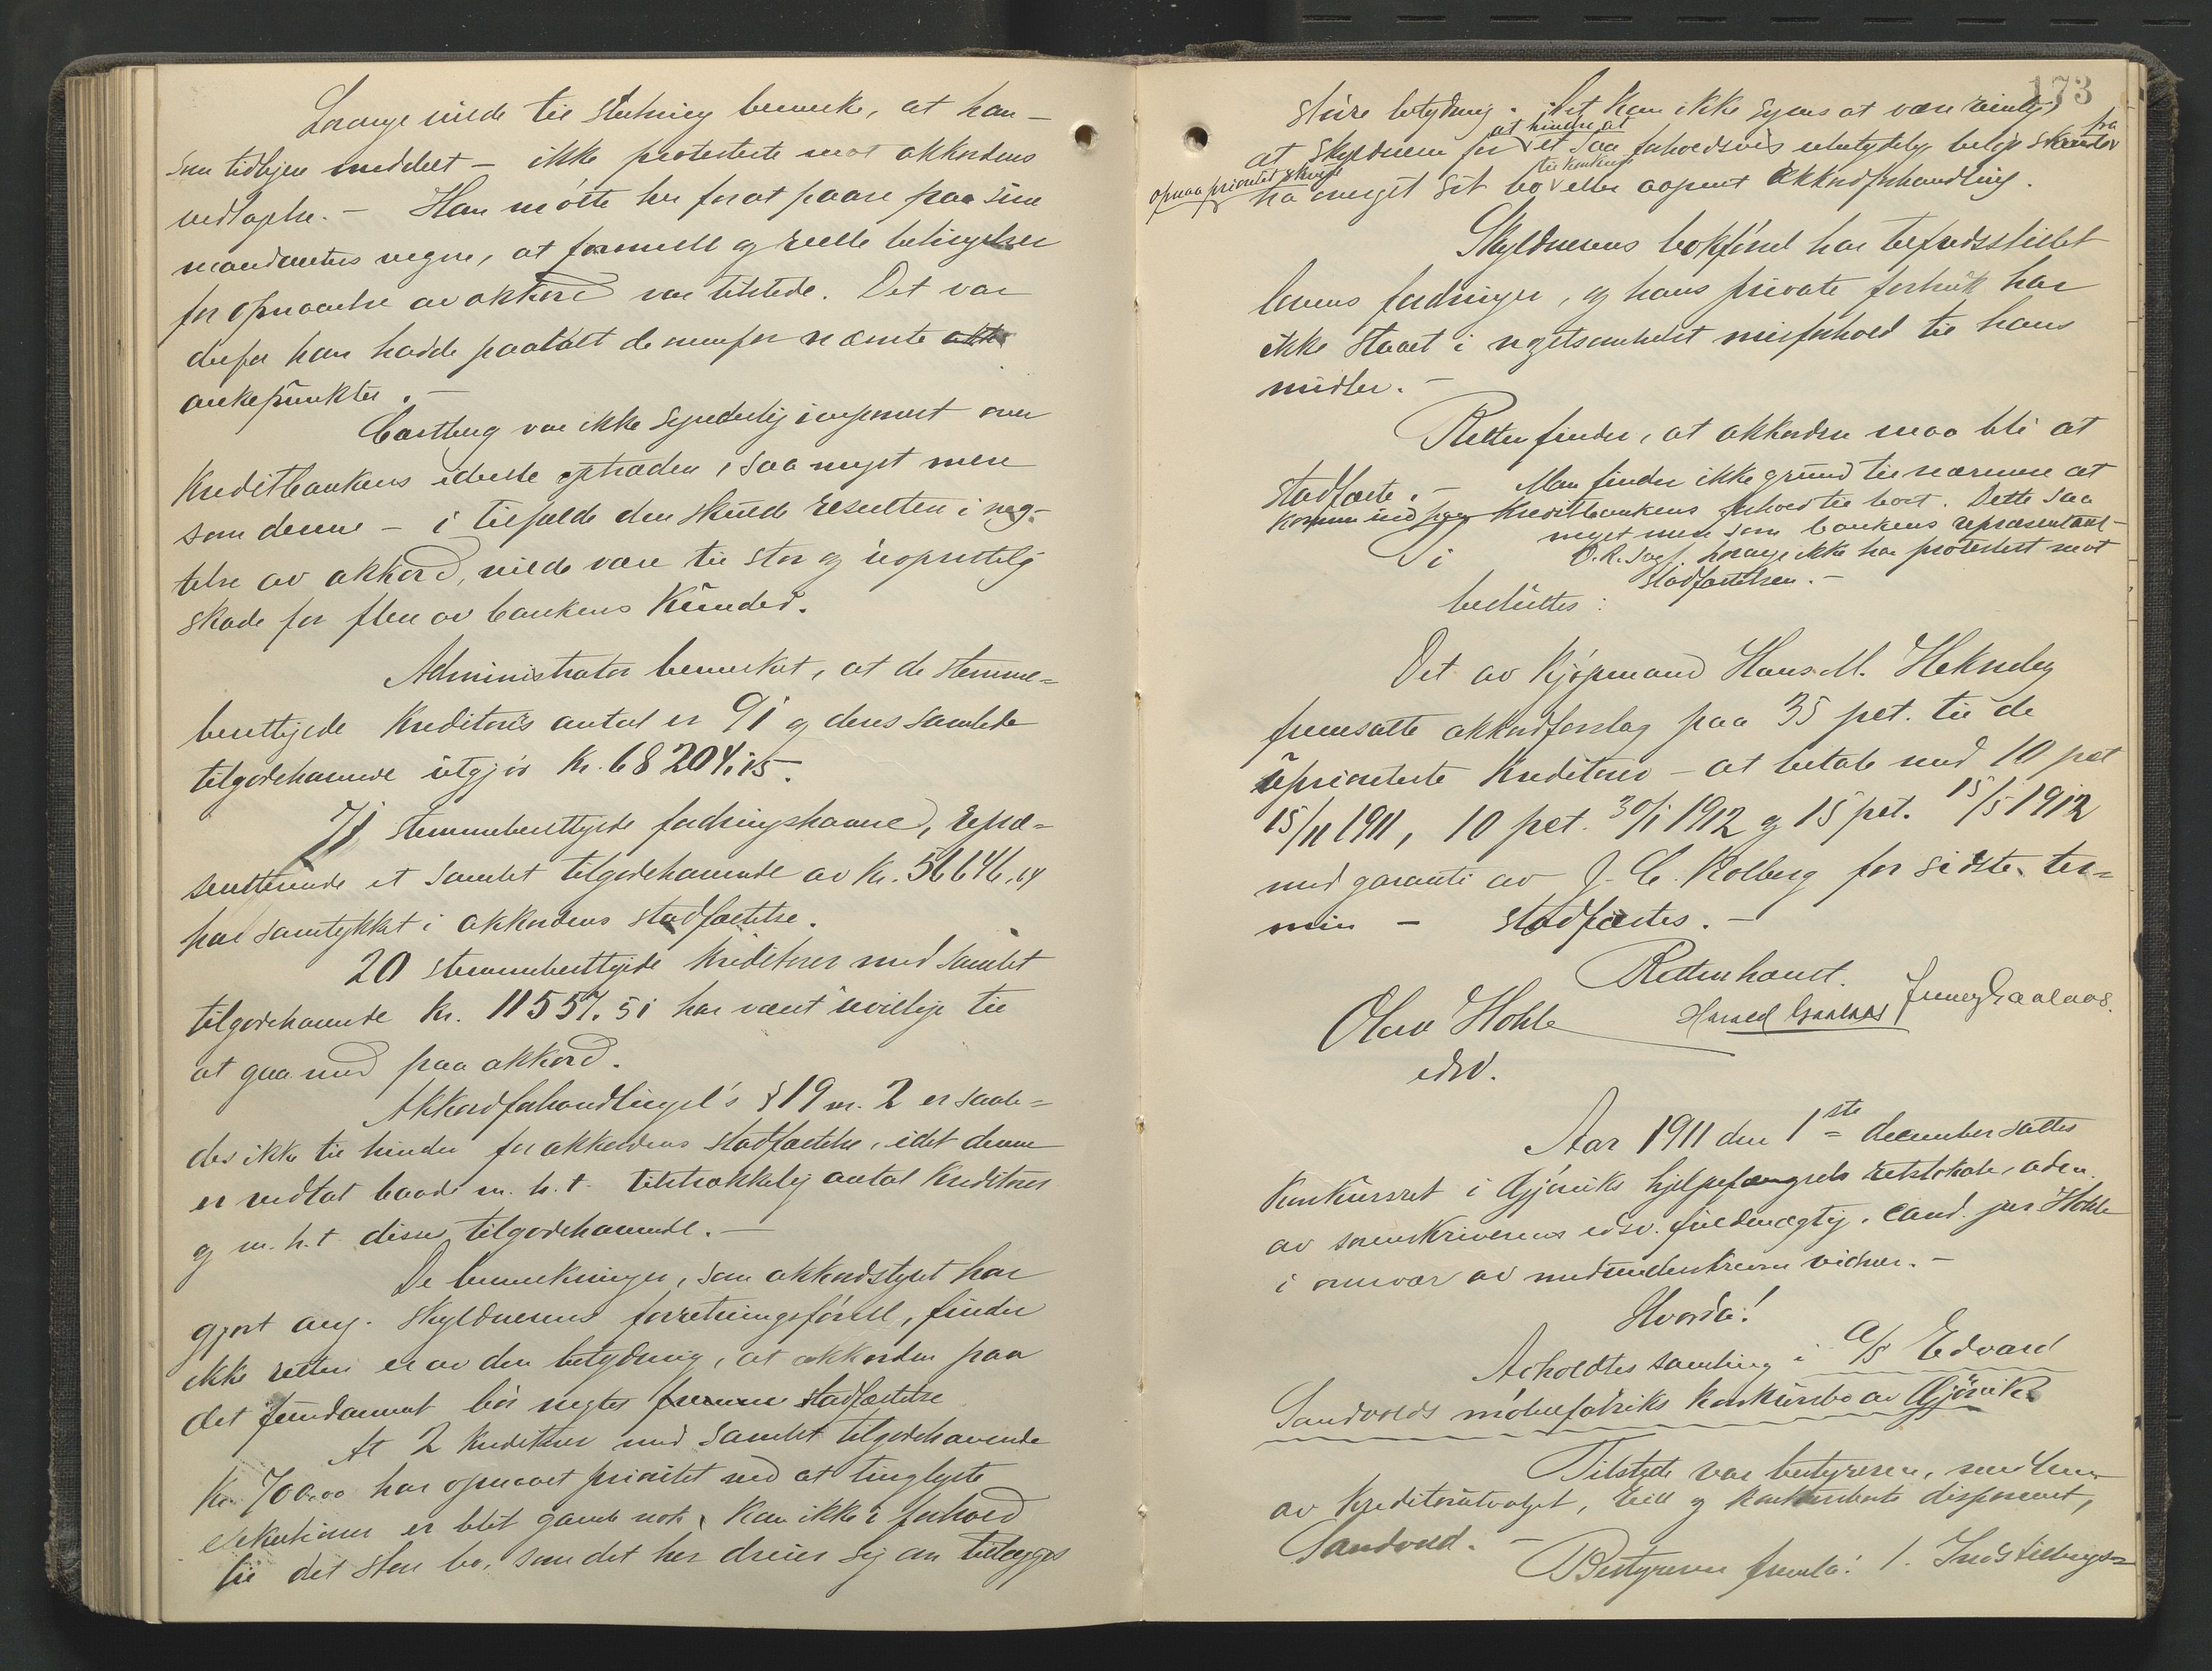 Lorange vilde til slutning bemerke, at han –
som tidligere meddelt – ikke protesterte mot akkordens
vedtagelse. – Han møtte her for at paase paa sine
mandanters vegne, at formelle og reelle betingelser
for opnaaelse av akkord var tilstede. Det var
derfor han hadde paatalt de ovenfor nævnte
ankepunkter. –
Castberg var ikke synderlig imponert over
Kreditbankens optræden, saa meget mere
som denne – i tilfælde den skulde resultere i neg-
telse av akkord, vilde være til stor og uoprettelig
skade for flere av bankens kunder.
Administrator bemerket, at de stemme=
berettigede kreditorers antal er 91 og deres samlede
tilgodehavende utgjør kr. 68204,15.
71 stemmeberettigede fordringshavere, repræ=
senterende et samlet tilgodehavende av kr. 56646,64
har samtykket i akkordens stadfæstelse.
20 stemmeberettigede kreditorer med samlet
tilgodehavende kr. 11557.51 har været uvillige til
at gaa med paa akkord.
Akkordforhandlingsl's § 19 nr. 2 er saale=
des ikke til hinder for akkordens stadfæstelse, idet denne
er vedtat baade m. h. t. tilstrækkelig antal kreditorer
og m. h. t. disses tilgodehavende. –
De bemerkninger, som akkordstyret har
gjort ang. skyldnerens forretningsførsel, finder
ikke retten er av den betydning, at akkorden paa
det fundament bør negtes stadfæstelse
At 2 kreditorer med samlet tilgodehavende
kr. 700,00 har opnaaet prioritet ved at tinglyste
eksekutioner er blit gamle nok, kan ikke i forhold
til det store bo, som det her dreier sig om tillægges
173
større betydning. Det kan ikke synes at være rimelig,
at hindre at
fra
at skyldneren for et saa forholdsvis ubetydelig beløp
til konkurs
opnaa prioritet skulde
ha overgit sit bo eller aapent akkordforhandling.
Skyldnerens bokførsel har tilfredsstillet
lovens fordringer, og hans private forbruk har
ikke staaet i nogetsomhelst misforhold til hans
midler. –
Retten finder, at akkorden maa bli at
stadfæste. – Man finder ikke grund til nærmere at
komme ind paa Kreditbankens forhold til boet. Dette saa
meget mere som bankens repræsentant –
O.R.sagf. Lorange ikke har protestert mot
stadfæstelsen. –
besluttes:
Det av Kjøpmand Hans M. Hekneby
fremsatte akkordforslag paa 35 pct. til de
uprioriterte kreditorer – at betale med 10 pct
15/11 1911, 10 pct. 30/1 1912 og 15 pct. 15/5 1912
med garanti av J. C. Kolberg for sidste ter=
min – stadfæstes. –
Retten hævet.
Olav Hohle
edsv.
Aar 1911 den 1ste december sattes
konkursret i Gjøviks hjelpefængsels retslokale
av sorenskriverens edsv. fuldmægtig, cand. jur Hohle
i overvær av medundertegnede vidner. –
Hvorda!
Avholdtes samling i A/S Edvard
Sandvolds møbelfabriks konkursbo av Gjøvik
Tilstede var bestyreren, medlem
av kreditorutvalget, og konkursboets disponent,
Sandvold. –
Bestyreren fremla: 1. Indstillings=